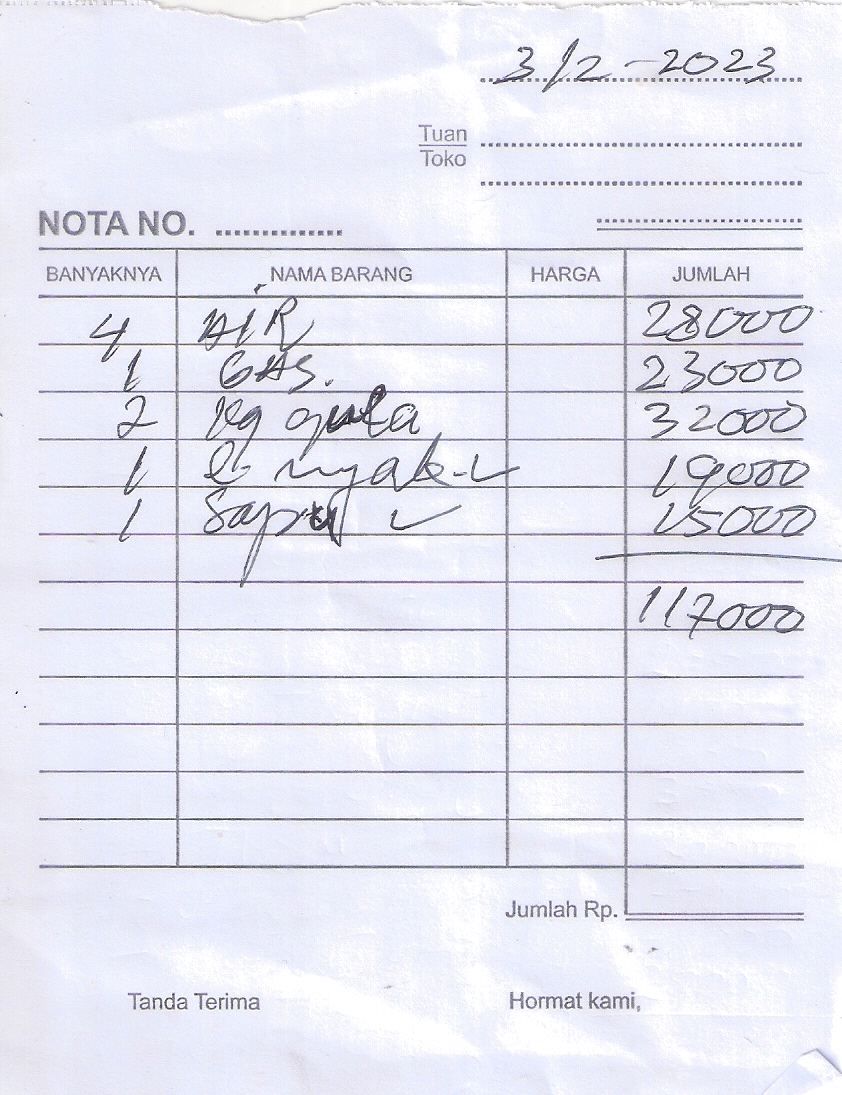 3/2-2023
Tuan
Toko
NOTA NO. ..............
BANYAKNYA NAMA BARANG HARGA JUMLAH
4 AIR 28000
1 GAS. 23000
2 kg gula 32000
1 nyak 19000
1 Sapu 15000
117000
Jumlah Rp.
Tanda Terima Hormat kami,